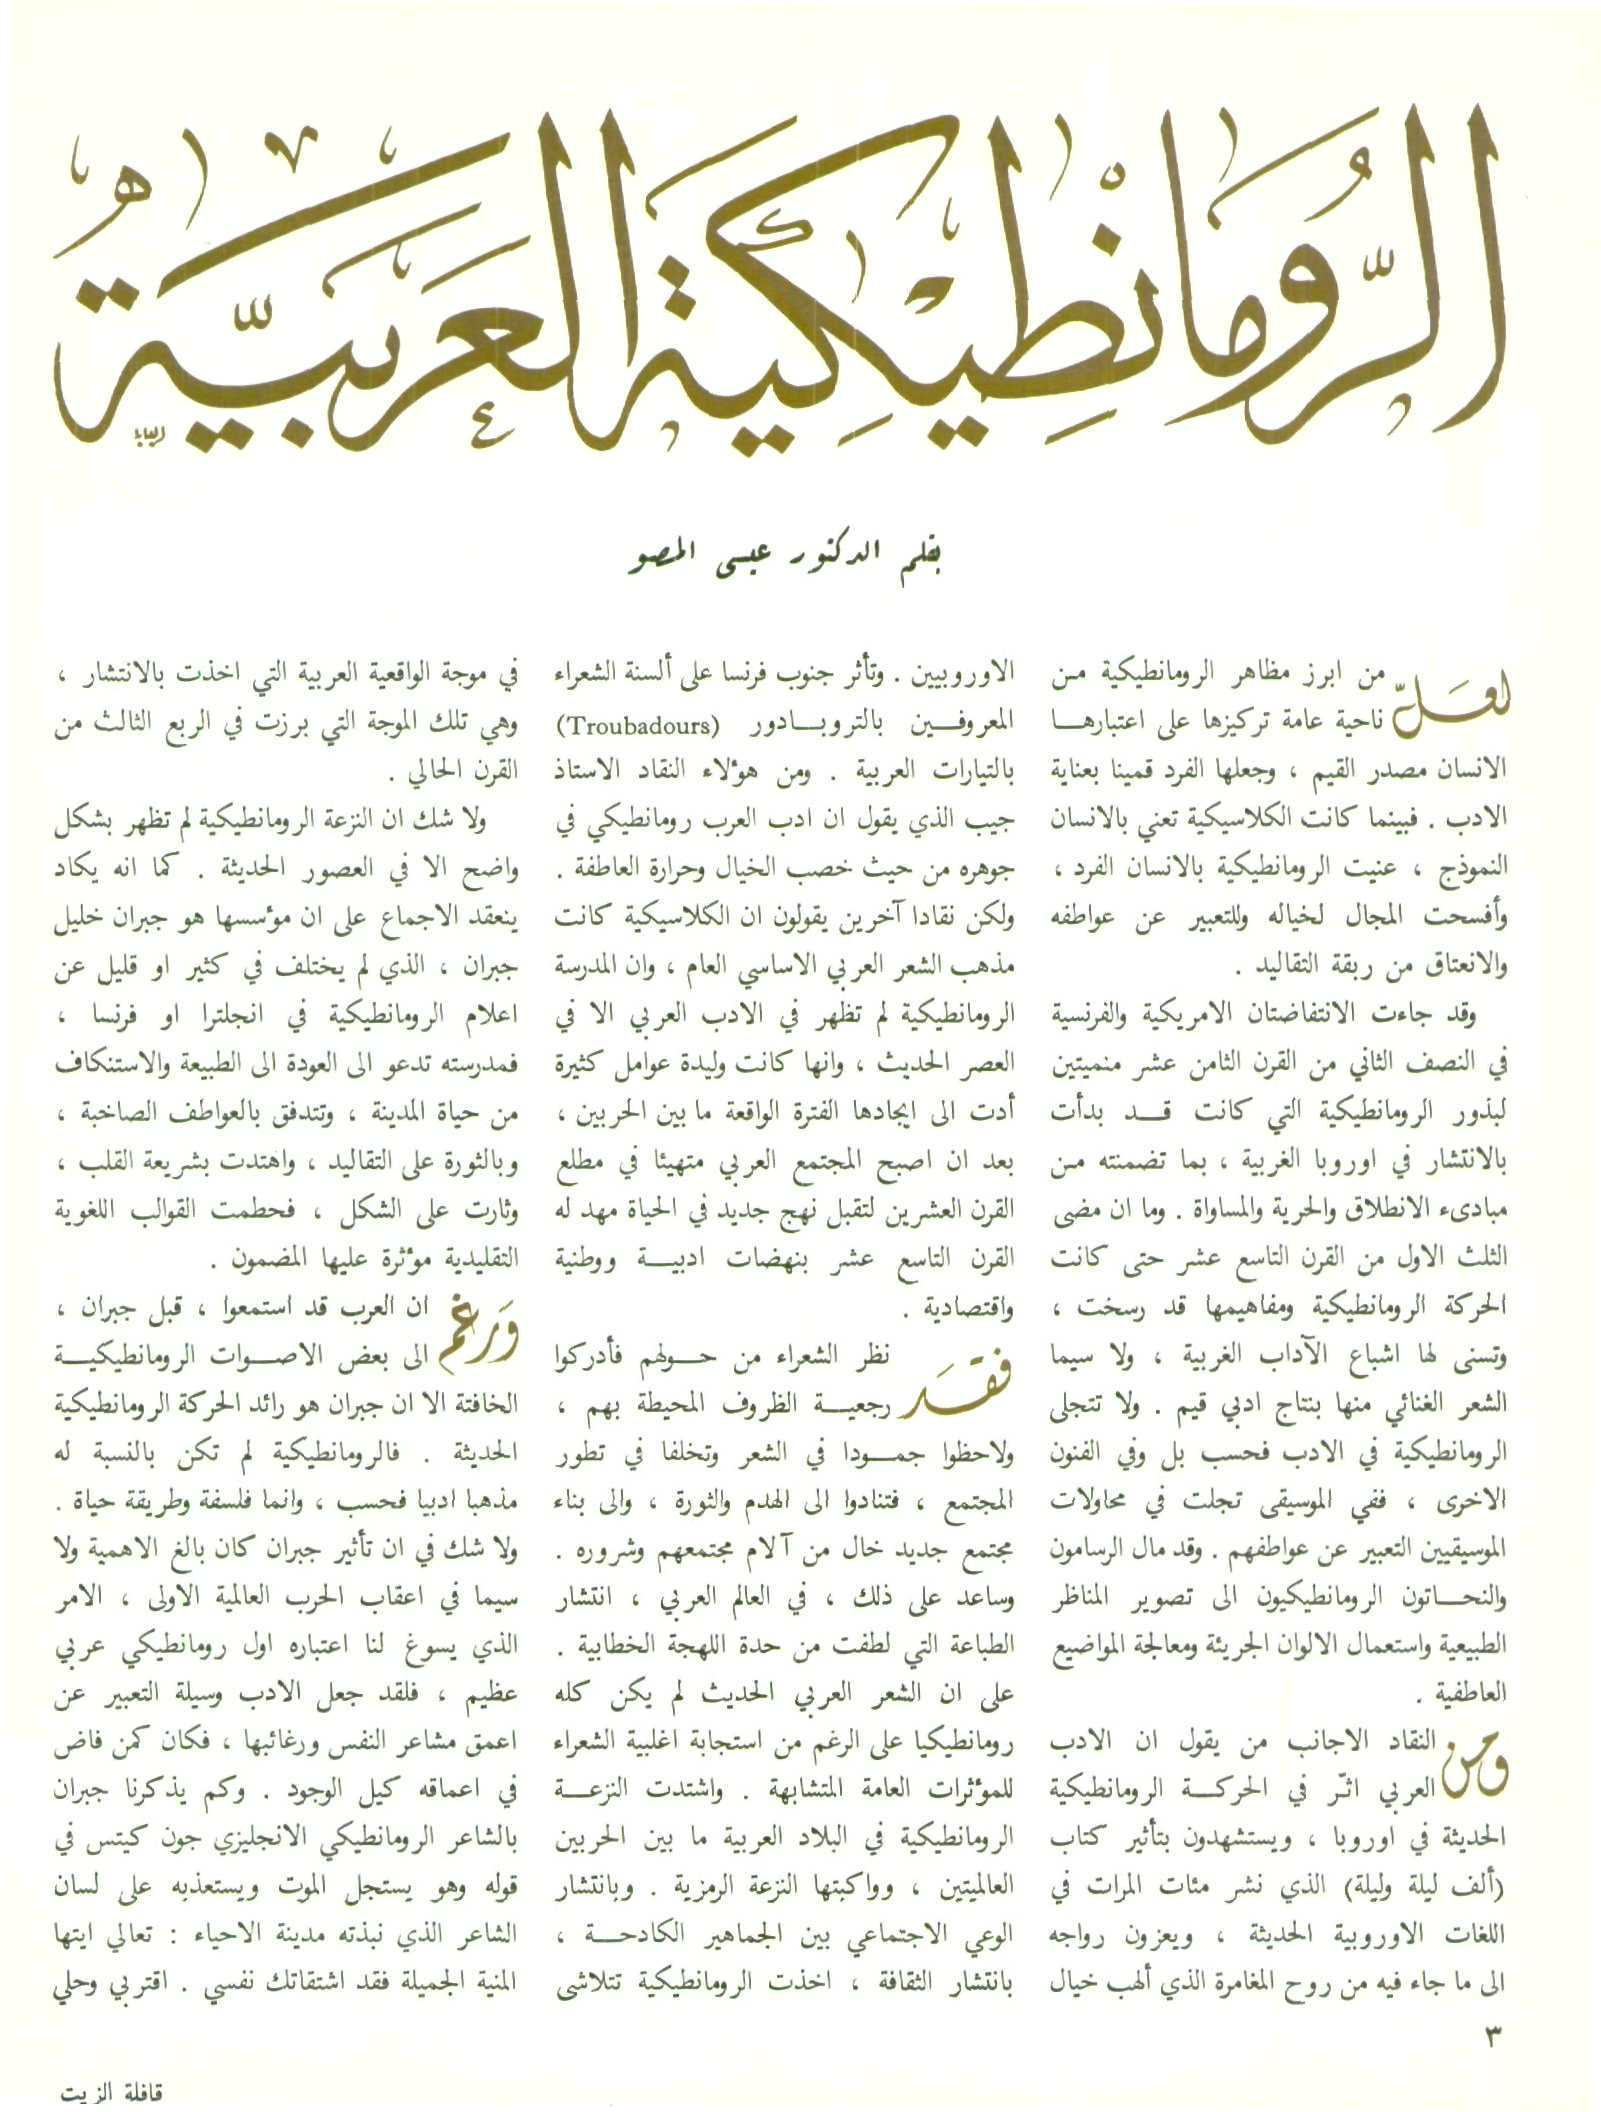 الرُّومَانْطِيكِيَة العَرَبِيَّة
بقلم الدكتور عيسى المصو
لعَلّ من ابرز مظاهر الرومانطيكية من
ناحية عامة تركيزها على اعتبارها
الانسان مصدر القيم ، وجعلها الفرد قمينا بعناية
الادب . فبينما كانت الكلاسيكية تعني بالانسان
النموذج ، عنيت الرومانطيكية بالانسان الفرد ،
وأفسحت المجال لخياله وللتعبير عن عواطفه
والانعتاق من ربقة التقاليد .
وقد جاءت الانتفاضتان الامريكية والفرنسية
في النصف الثاني من القرن الثامن عشر منميتين
لبذور الرومانطيكية التي كانت قد بدأت
بالانتشار في اوروبا الغربية ، بما تضمنته من
مبادىء الانطلاق والحرية والمساواة . وما ان مضى
الثلث الاول من القرن التاسع عشر حتى كانت
الحركة الرومانطيكية ومفاهيمها قد رسخت ،
وتسنى لها اشباع الآداب الغربية ، ولا سيما
الشعر الغنائي منها بنتاج ادبي قيم . ولا تتجلى
الرومانطيكية في الادب فحسب بل وفي الفنون
الاخرى ، ففي الموسيقى تجلت في محاولات
الموسيقيين التعبير عن عواطفهم . وقد مال الرسامون
والنحاتون الرومانطيكيون الى تصوير المناظر
الطبيعية واستعمال الالوان الجريئة ومعالجة المواضيع
العاطفية .
ومن النقاد الاجانب من يقول ان الادب
العربي اثّر في الحركة الرومانطيكية
الحديثة في اوروبا ، ويستشهدون بتأثير كتاب
(ألف ليلة وليلة) الذي نشر مئات المرات في
اللغات الاوروبية الحديثة ، ويعزون رواجه
الى ما جاء فيه من روح المغامرة الذي ألهب خيال
الاوروبيين . وتأثر جنوب فرنسا على ألسنة الشعراء
المعروفين بالتروبادور (Troubadours)
بالتيارات العربية . ومن هؤلاء النقاد الاستاذ
جيب الذي يقول ان ادب العرب رومانطيكي في
جوهره من حيث خصب الخيال وحرارة العاطفة .
ولكن نقادا آخرين يقولون ان الكلاسيكية كانت
مذهب الشعر العربي الاساسي العام ، وان المدرسة
الرومانطيكية لم تظهر في الادب العربي الا في
العصر الحديث ، وانها كانت وليدة عوامل كثيرة
أدت الى ايجادها الفترة الواقعة ما بين الحربين ،
بعد ان اصبح المجتمع العربي متهيئا في مطلع
القرن العشرين لتقبل نهج جديد في الحياة مهد له
القرن التاسع عشر بنهضات ادبية ووطنية
واقتصادية .
فقد نظر الشعراء من حولهم فأدركوا
رجعية الظروف المحيطة بهم ،
ولاحظوا جمودا في الشعر وتخلفا في تطور
المجتمع ، فتنادوا الى الهدم والثورة ، والى بناء
مجتمع جديد خال من آلام مجتمعهم وشروره .
وساعد على ذلك ، في العالم العربي ، انتشار
الطباعة التي لطفت من حدة اللهجة الخطابية .
على ان الشعر العربي الحديث لم يكن كله
رومانطيكيا على الرغم من استجابة اغلبية الشعراء
للمؤثرات العامة المتشابهة . واشتدت النزعة
الرومانطيكية في البلاد العربية ما بين الحربين
العالميتين ، وواكبتها النزعة الرمزية . وبانتشار
الوعي الاجتماعي بين الجماهير الكادحة ،
بانتشار الثقافة ، اخذت الرومانطيكية تتلاشى
في موجة الواقعية العربية التي اخذت بالانتشار ،
وهي تلك الموجة التي برزت في الربع الثالث من
القرن الحالي .
ولا شك ان النزعة الرومانطيكية لم تظهر بشكل
واضح الا في العصور الحديثة . كما انه يكاد
ينعقد الاجماع على ان مؤسسها هو جبران خليل
جبران ، الذي لم يختلف في كثير او قليل عن
اعلام الرومانطيكية في انجلترا او فرنسا ،
فمدرسته تدعو الى العودة الى الطبيعة والاستنكاف
من حياة المدينة ، وتتدفق بالعواطف الصاخبة ،
وبالثورة على التقاليد ، واهتدت بشريعة القلب ،
وثارت على الشكل ، فحطمت القوالب اللغوية
التقليدية مؤثرة عليها المضمون .
وَرغم ان العرب قد استمعوا ، قبل جبران ،
الى بعض الاصوات الرومانطيكية
الخافتة الا ان جبران هو رائد الحركة الرومانطيكية
الحديثة . فالرومانطيكية لم تكن بالنسبة له
مذهبا ادبيا فحسب ، وانما فلسفة وطريقة حياة .
ولا شك في ان تأثير جبران كان بالغ الاهمية ولا
سيما في اعقاب الحرب العالمية الاولى ، الامر
الذي يسوغ لنا اعتباره اول رومانطيكي عربي
عظيم ، فلقد جعل الادب وسيلة التعبير عن
اعمق مشاعر النفس ورغائبها ، فكان كمن فاض
في اعماقه كيل الوجود . وكم يذكرنا جبران
بالشاعر الرومانطيكي الانجليزي جون كيتس في
قوله وهو يستجل الموت ويستعذبه على لسان
الشاعر الذي نبذته مدينة الاحياء : تعالي ايتها
المنية الجميلة فقد اشتقاتك نفسي . اقتربي وحلي
٣
قافلة الزيت